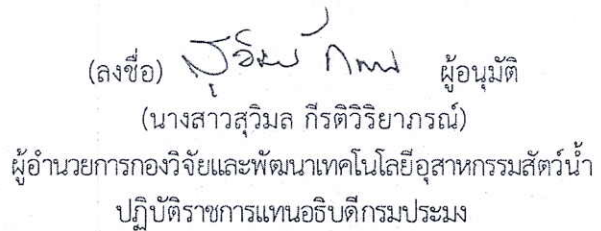 (ลงชื่อ) ผู้อนุมัติ
(นางสาวสุวิมล กีรติวิริยาภรณ์)
ผู้อำนวยการกองวิจัยและพัฒนาเทคโนโลยีอุสาหกรรมสัตว์น้ำ
ปฏิบัติราชการแทนอธิบดีกรมประมง